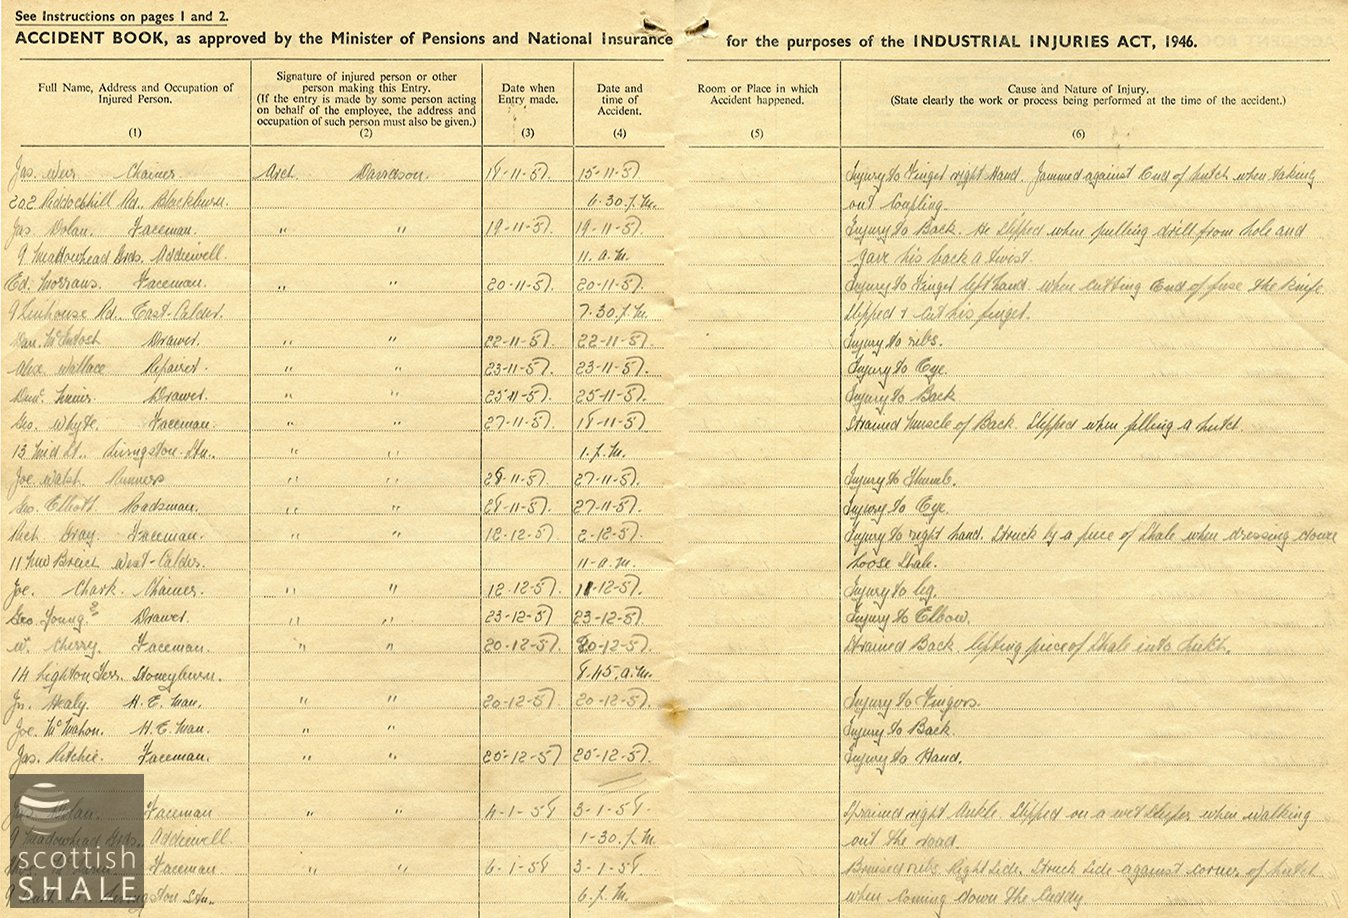 See Instructions on pages 1 and 2.
ACCIDENT BOOK, as approved by the Minister of Pensions and National Insurance for the purposes of the INDUSTRIAL INJURIES ACT, 1946.
Full Name, Address and Occupation of Injured Person. (1)
Signature of injured person or other person making this Entry. (If the entry is made by some person acting on behalf of the employee, the address and occupation of such person must also be given.) (2)
Date when Entry made. (3)
Date and time of Accident. (4)
Room or Place in which Accident happened. (5)
Cause and Nature of Injury. (State clearly the work or process being performed at the time of the accident.) (6)
Jas. Weir Chainer Arch. Davidson. 18-11-57. 15-11-57. Injury to Finger right Hand. Jammed against End of hutch when taking
202 Riddochhill Rd. Blackburn. 6.30.p.m. out Coupling.
Jas Dolan. Faceman. " " 19-11-57. 19-11-57. Injury to Back. He slipped when pulling drill from hole and
9 Meadowhead Grds. Addiewell. 11.a.m. gave his back a twist.
Ed. Faceman. " " 20-11-57. 20-11-57. Injury to Finger left hand. when cutting End of fuse the knife
9 Linhouse Rd. East-Calder. 7.30.p.m. slipped & cut his finger.
Dan. McIntosh Drawer. " " 22-11-57. 22-11-57. Injury to ribs.
Alex Wallace Repairer. " " 23-11-57. 23-11-57. Injury to Eye.
Drawer. " " 25-11-57. 25-11-57. Injury to Back
Geo. Whyte. Faceman. " " 27-11-57. 18-11-57. Strained Muscle of Back. Slipped when filling a hutch
13 St.. Livingston Stn.. " " 1.p.m.
Joe Walsh. Runners " " 28-11-57. 27-11-57. Injury to Thumb.
Geo. Elliott. Roadsman. " " 28-11-57. 27-11-57. Injury to Eye.
Rich Gray. Faceman. " " 12-12-57. 2-12-57. Injury to right hand. Struck by a piece of Shale when dressing down
11 Breich West-Calder. 11-a.m. loose Shale.
Joe. Chark. Chainer. " " 12.12-57. 11-12-57. Injury to leg.
Geo. Young. 2 Drawer. " " 23-12-57 23-12-57. Injury to Elbow.
W. Cherry. Faceman. " " 20-12-57. 20-12-57. Strained Back. lifting piece of Shale into hutch.
14 Lighton Terr. Stoneyburn. 8.45.a.m.
Jn. Healy. H.E. Man. " " 20-12-57. 20-12-57. Injury to Fingers.
Joe. McMahon. H.E. Man. " " Injury to Back.
Jas. Ritchie. Faceman. " " 25-12-57 25-12-57. Injury to Hand.
Faceman " " 4-1-58 3-1-58. Sprained right Ankle. Slipped on a wet Sleeper when walking
9 Meadowhead Grds. Addiewell. 1-30.p.m. out the road.
Faceman. " " 6-1-58 3-1-58 Bruised ribs. Right Side. Struck Side against corner of hutch
Livingston Stn.. 6.p.m. when coming down the Cuddy.
scottish
SHALE